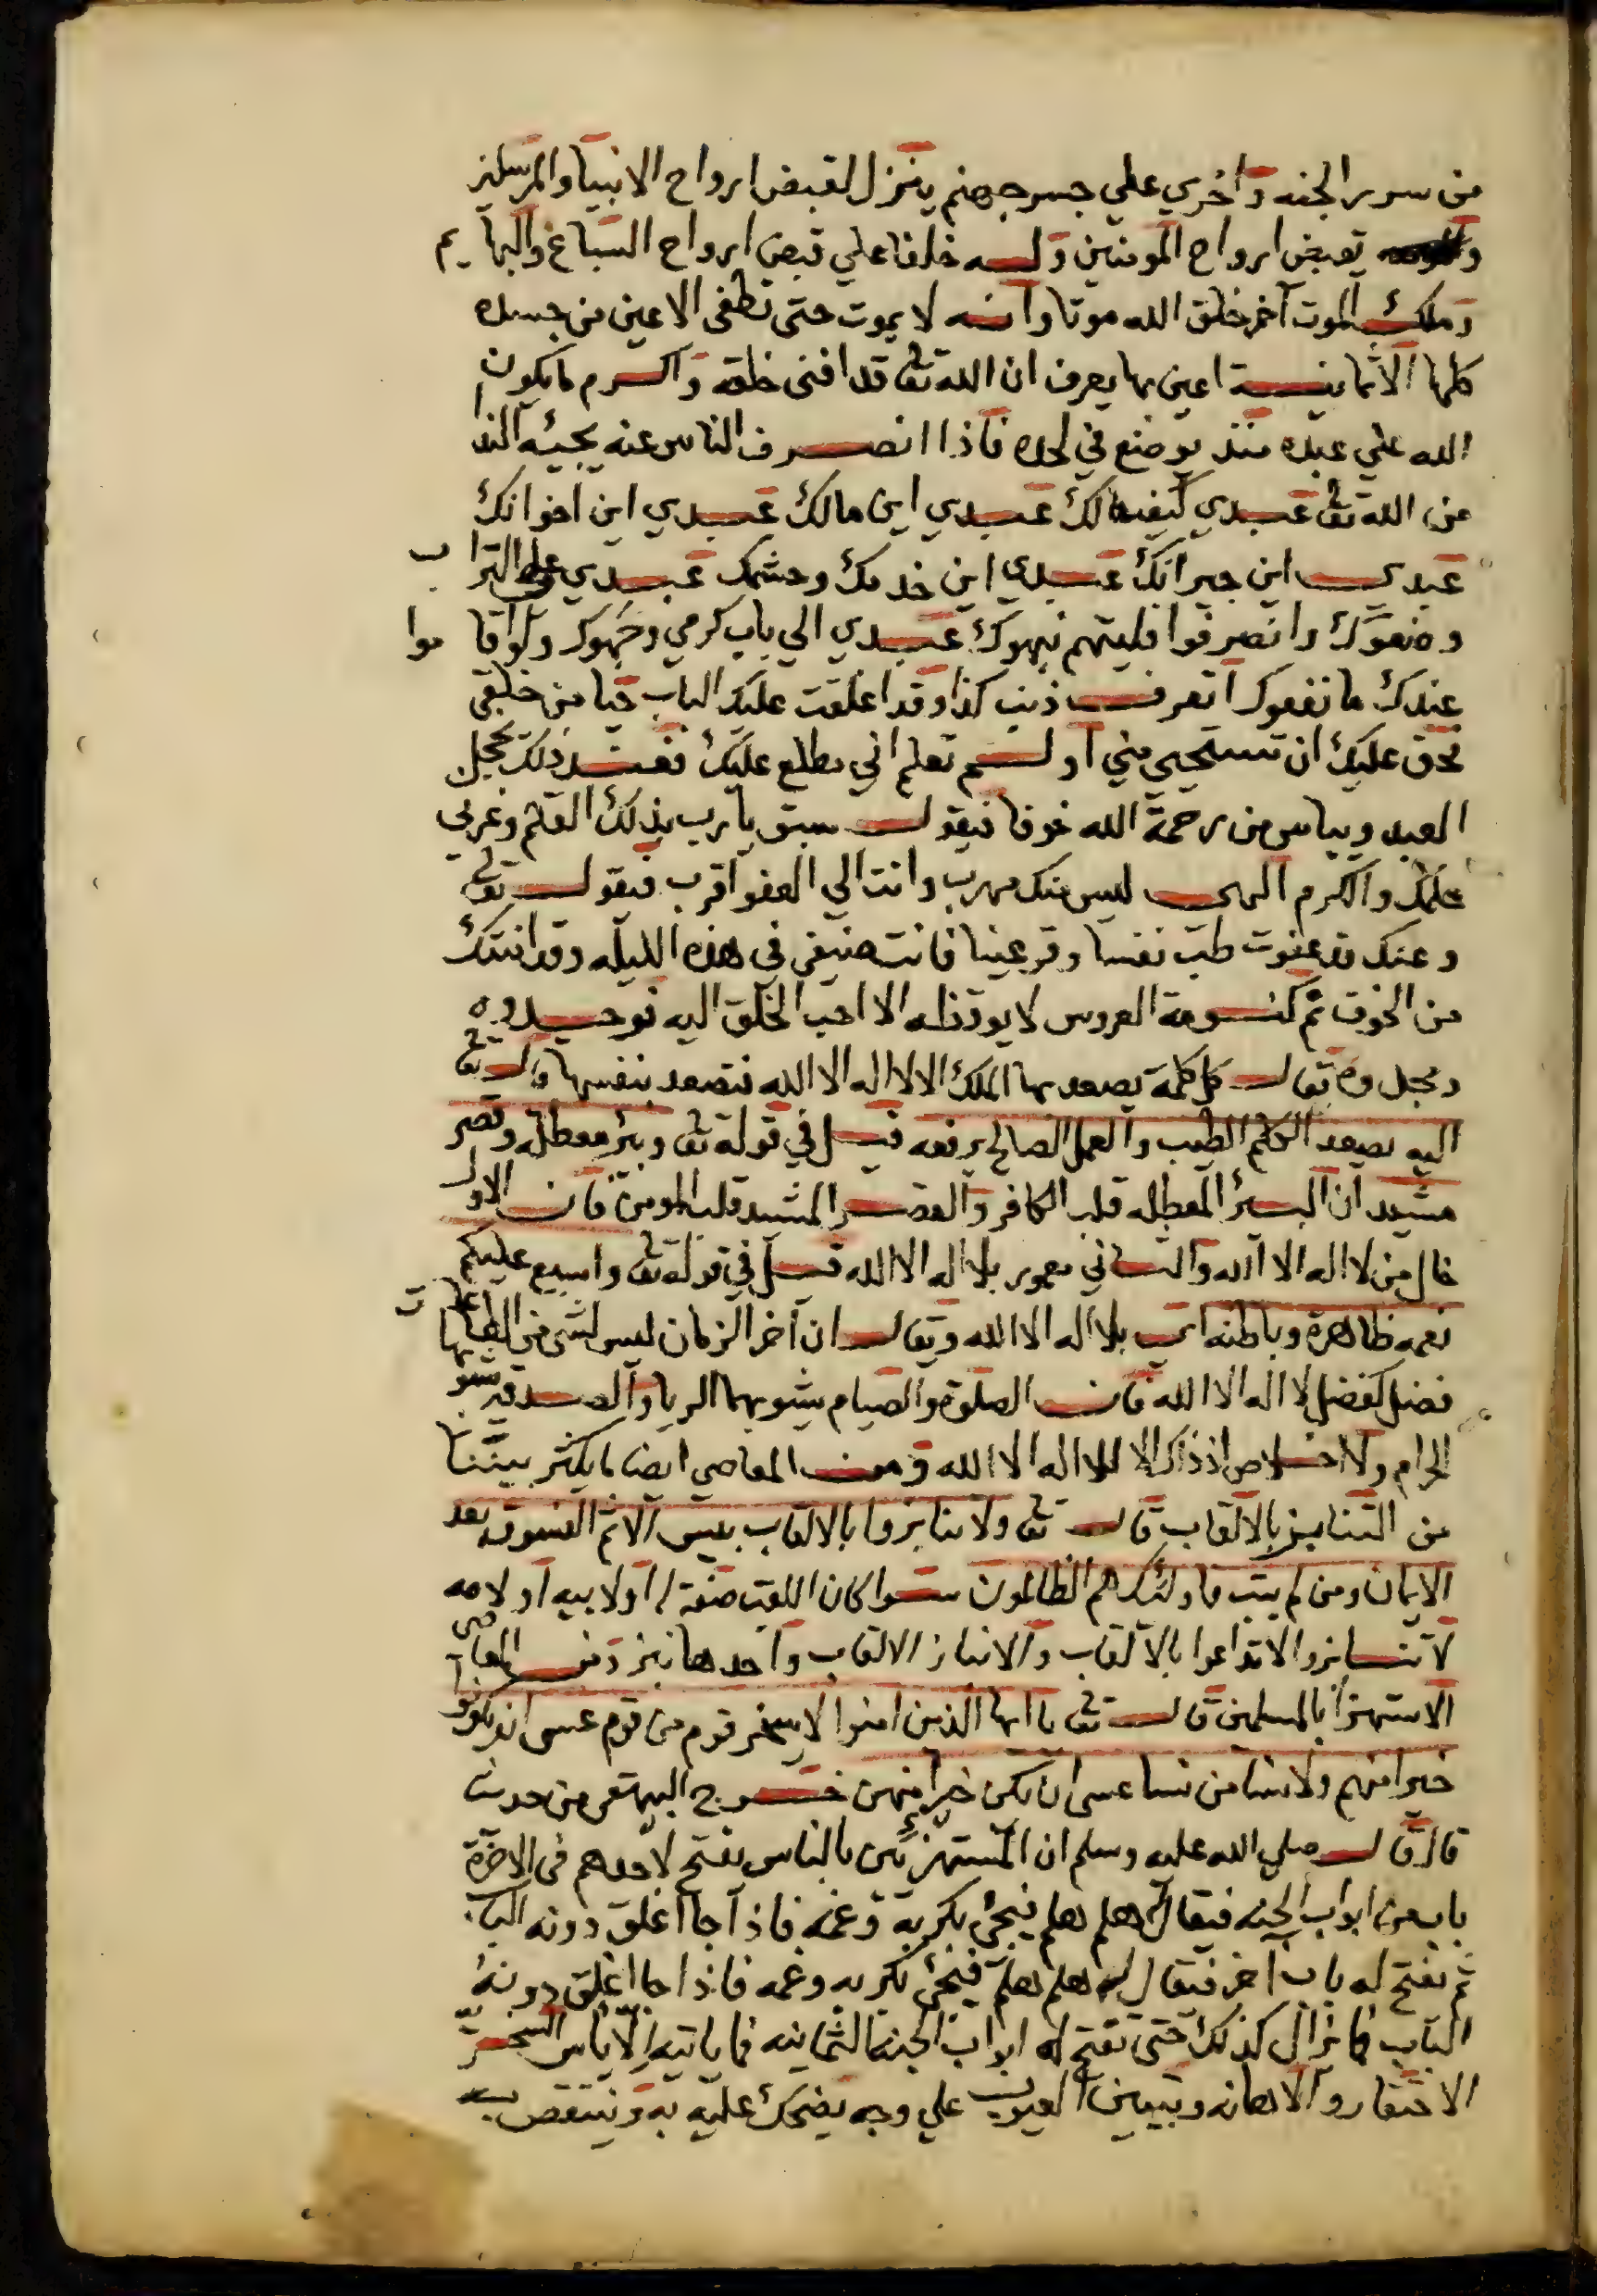 من سرر الجنه واخري علي جسر جهنم ينزل لقبض ارواح الانبيا والمرسلين
تقبض ارواح المومنين وله خلفا علي قبض ارواح السباع والبهايم
وملك الموت آخر خلق الله موتا وانه لا يموت حتى تطفى الاعين من جسده
كلها الا ثمانية اعين بها يعرف ان الله تعالى قد افنى خلقه واكرم ما يكون
الله علي عبده منذ يوضع في لحده فاذا انصرف الناس عنه يجيئه الندا
من الله تعالى عبدي كيف حالك عبدي اين مالك عبدي اين اخوانك
عبدي اين جيرانك عبدي اين خدمك وحشمك عبدي علي التراب
وضعوك وانصرفوا فليتهم نبهوك عبدي الي باب كرمي وجهوك ولو اقاموا
عندك ما نفعوك اتعرف ذنب كذا وقد اغلقت عليك الباب حيا من خلقي
فحق عليك ان تستحيي مني اولم تعلم اني مطلع عليك فعند ذلك يخجل
العبد وييأس من رحمة الله خوفا فيقول سبق يا رب بذلك القلم وغرني
حلمك والكرم الهي ليس منك مهرب وانت الي العفو اقرب فيقول تعالى
وعنك قد عفوت طب نفسا وقر عينا فانت ضيفي في هذه الليله وقد امنتك
من الخوف نم كنومة العروس لا يوقظه الا احب الخلق اليه توحيده
ويقال كل كلمة يصعد بها الملك الا لا اله الا الله فتصعد بنفسها قال تعالى
اليه يصعد الكلم الطيب والعمل الصالح يرفعه قيل في قوله تعالى وبئر معطله وقصر
مشيد ان البئر المعطله قلب الكافر والقصر المشيد قلب المومن فان الاول
خال من لا اله الا الله والثاني معمور بلا اله الا الله قيل في قوله تعالى واسبغ عليكم
نعمه ظاهرة وباطنه اي بلا اله الا الله ويقال ان آخر الزمان ليس لشي من الطاعات
فضل كفضل لا اله الا الله فان الصلوة والصيام يشوبهما الريا والصدقه يشوبها
الحرام ولا اخلاص اذ ذاك الا للا اله الا الله ومن المعاصي ايضا ما يكثر بيننا
من التنابز بالالقاب قال تعالى ولا تنابزوا بالالقاب بئس الاسم الفسوق بعد
الايمان ومن لم يتب فاولئك هم الظالمون سوا كان اللقب صفة له او لابيه او لامه
لا تنابزوا لا تداعوا بالالقاب والانباز الالقاب واحدها نبز ومن المعاصي
الاستهزا بالمسلمين قال تعالى يا ايها الذين امنوا لا يسخر قوم من قوم عسى ان يكونوا
خيرا منهم ولا نسا من نسا عسى ان يكن خيرا منهن خرج البيهقي من حديث
قال قال صلي الله عليه وسلم ان المستهزئين بالناس يفتح لاحدهم في الاخرة
باب من ابواب الجنه فيقال له هلم هلم فيجئ بكربه وغمه فاذا جا اغلق دونه الباب
ثم يفتح له باب آخر فيقال له هلم هلم فيجئ بكربه وغمه فاذا جا اغلق دونه
الباب فما يزال كذلك حتى تفتح له ابواب الجنه الثمانيه فما ياتيه الاياس السخرية
الاحتقار والاهانه وتبيين العيوب علي وجه يضحك عليه به وينتقص به